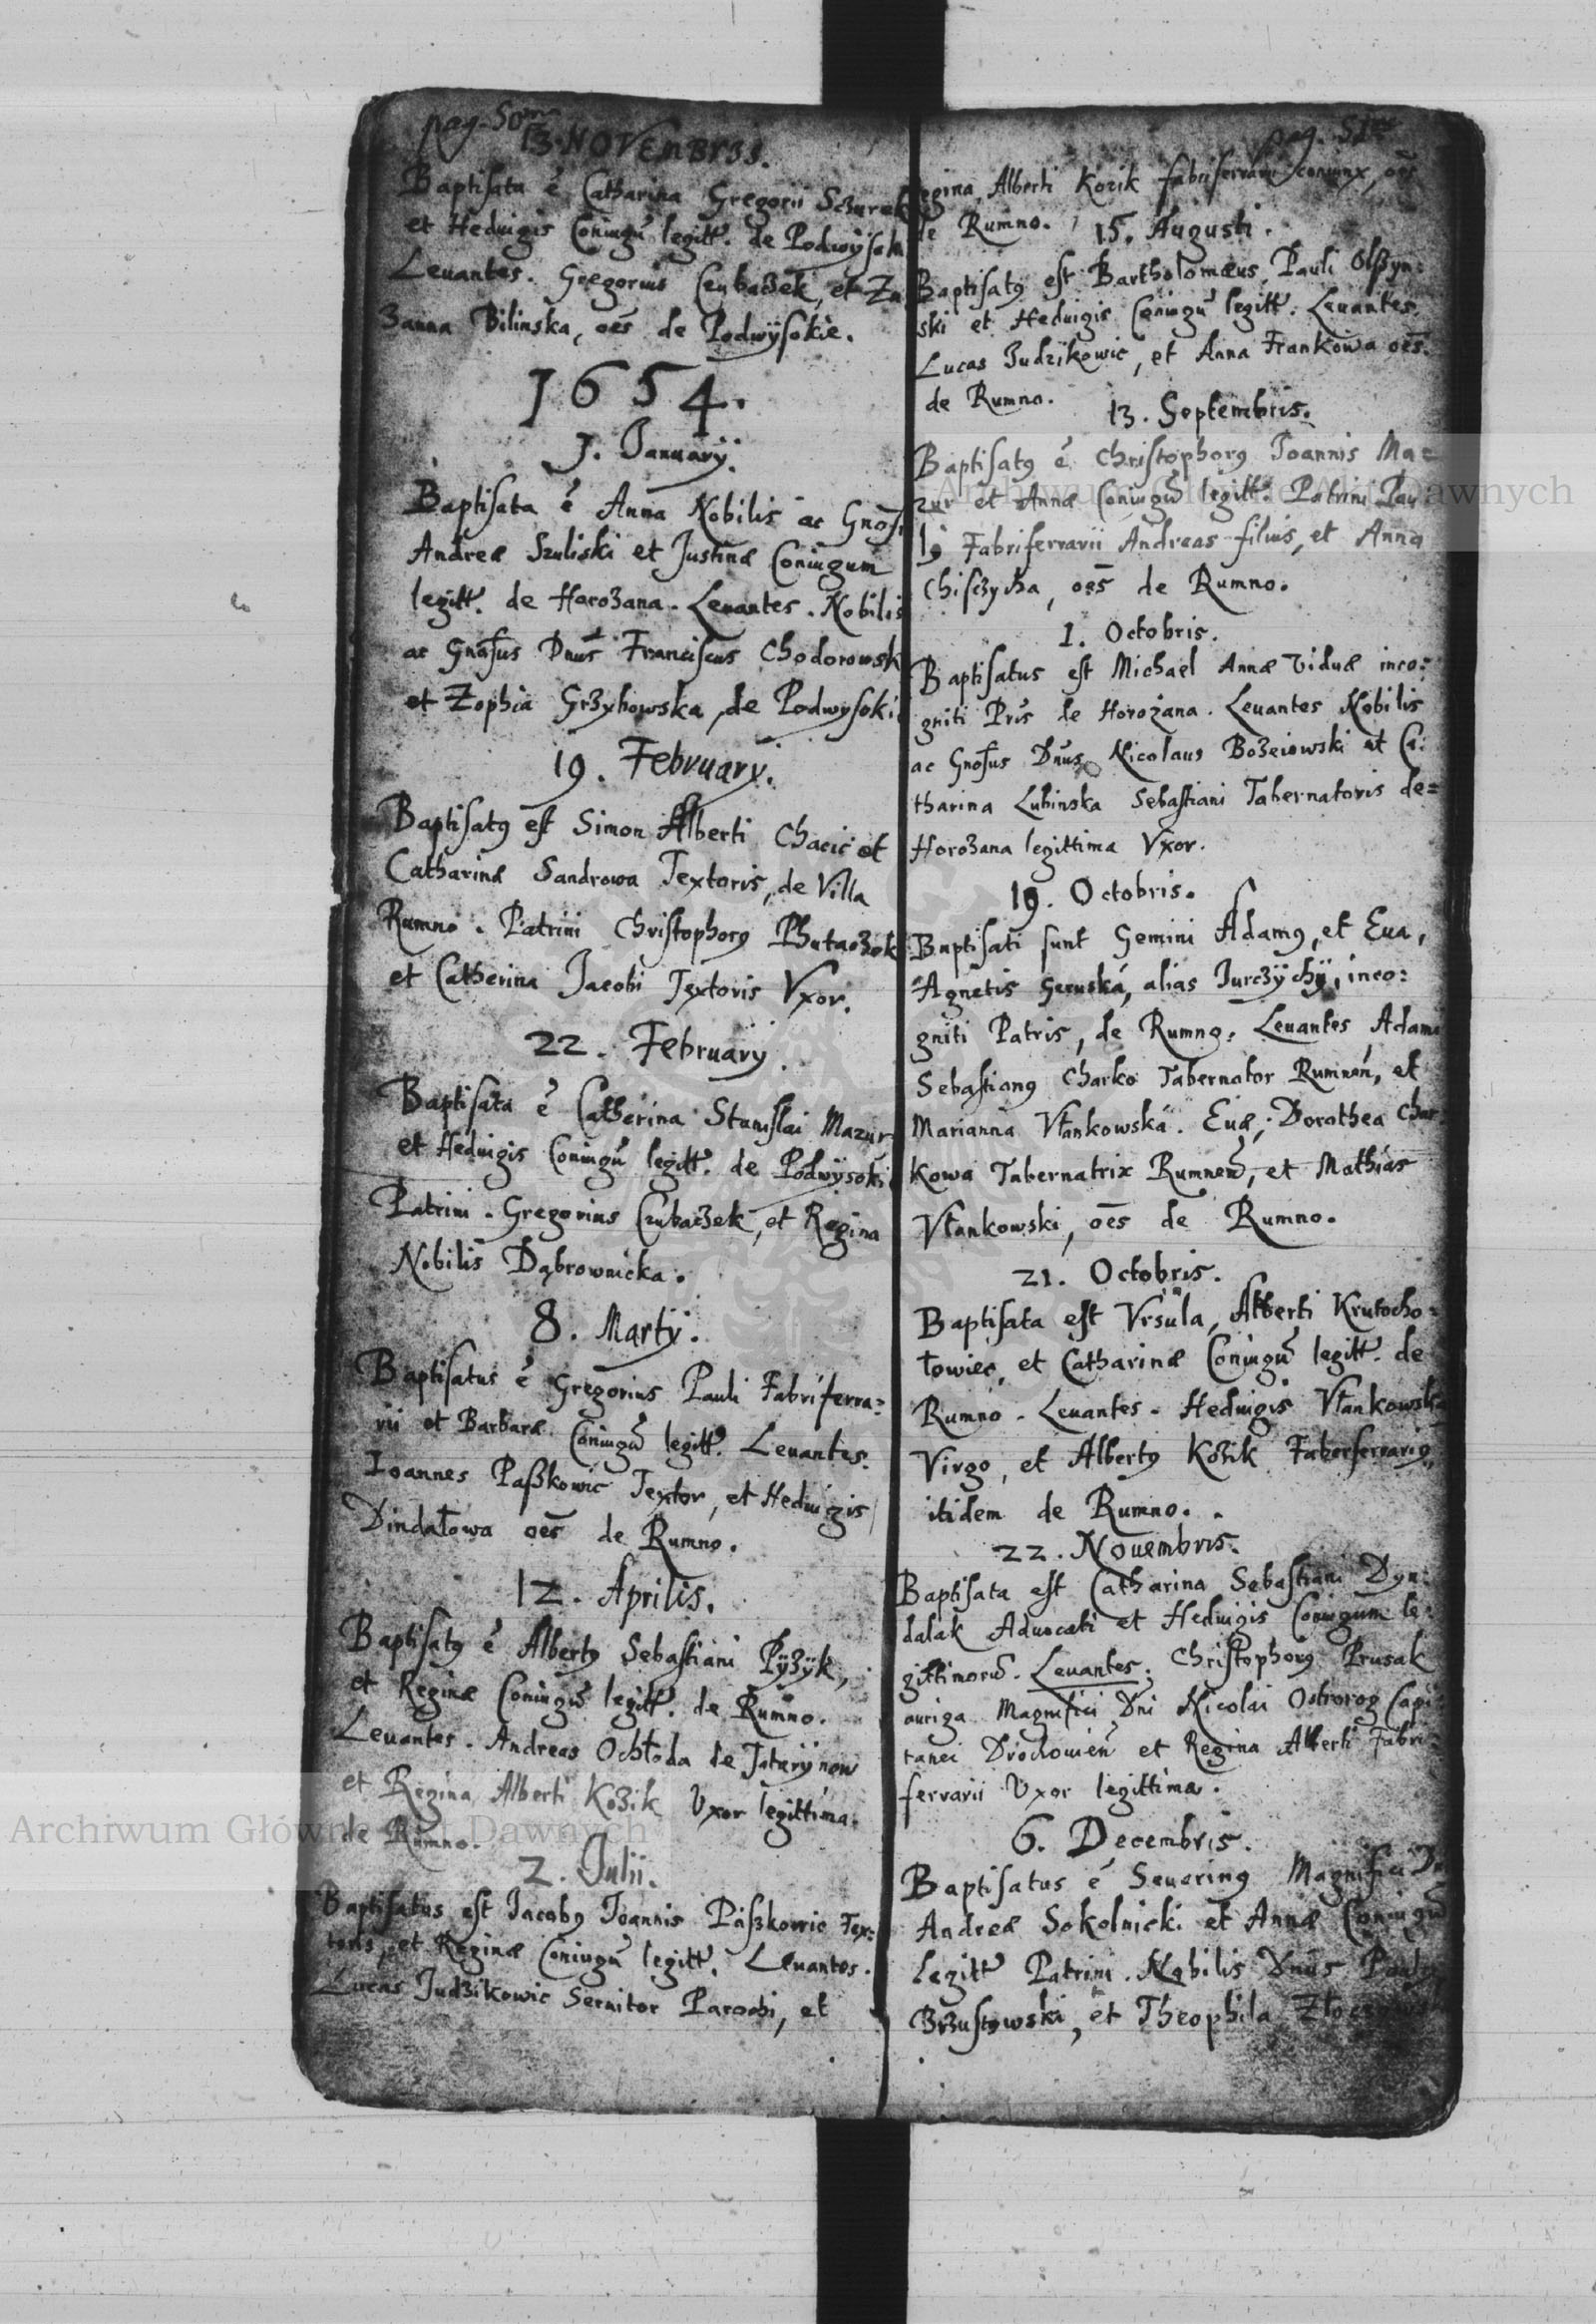 pag. 50
13. NOVEMBRIS.
Baptisata ē Catharina Gregorii Sczurek
et Heduigis Coniugũ legitt. de Podwÿsok
Leuantes. Gregorius Czubaczek, et Zu
zanna Bilinska, oēs de Podwÿsokie.
1654.
1. Januarÿ.
Baptisata ē Anna Nobilis ac Gnōsi
Andreæ Szuliski et Justinæ Coniugum
legitt. de Horozana. Leuantes. Nobilis
ac Gnōsus Dnūs Franciscus Chodorowsk
et Zophia Grzybowska, de Podwysoki
19. Februarÿ.
Baptisatꝰ est Simon Alberti Chacic et
Catharinæ Sandrowa Textoris, de Villa
Rumno. Patrini Christophorꝰ
et Catherina Jacobi Textoris Vxor.
22. Februarÿ.
Baptisata ē Catherina Stanislai Mazur
et Heduigis Coniugũ legitt. de Podwÿsoki
Patrini. Gregorius Czubaczek, et Regina
Nobilis Dąbrownicka.
8. Martÿ.
Baptisatus ē Gregorius Pauli Fabriferra=
rii et Barbaræ Coniugũ legitt. Leuantes.
Ioannes Paßkowic Textor, et Heduigis
Dindałowa oēs de Rumno.
12. Aprilis.
Baptisatꝰ ē Albertꝰ Sebastiani Pÿzÿk,
et Reginæ Coniugũ legitt. de Rumno.
Leuantes. Andreas Ochłoda de Jatwÿnow
et Regina Alberti Kozik Vxor legittima.
de Rumno.
2. Julii.
Baptisatus est Jacobꝰ Joannis Paßkowic Tex=
toris, et Reginæ Coniugũ legitt. Leuantes.
Lucas Judzikowic Seruitor Parochi, et
pag. 51
egina, Alberti Kozik fabriferrarii coniunx, oēs
de Rumno.
15. Augusti.
Baptisatꝰ est Bartholomæus, Pauli Olßyn=
ski et Heduigis Coniugũ legitt. Leuantes.
Lucas Judzikowic, et Anna Frankowa oēs.
de Rumno.
13. Septembris.
Baptisatꝰ ē Christophorꝰ Joannis Ma=
zur et Annæ Coniugũ legitt. Patrini Pau=
lꝰ Fabriferrarii Andreas filius, et Anna
Chisczycha, oēs de Rumno.
1. Octobris.
Baptisatus est Michael Annæ Viduæ inco=
gniti Pris de Horożana. Leuantes Nobilis
ac Gnōsus Dnūs Nicolaus Bozeiowski et Ca=
tharina Lubinska Sebastiani Tabernatoris de=
Horozana legittima Vxor.
19. Octobris.
Baptisati sunt Gemini Adamꝰ, et Eua,
Agnetis Geruská, alias Jurczÿchÿ, inco=
gniti Patris, de Rumno. Leuantes Adami
Sebastianꝰ Charko Tabernator Rumnen, et
Marianna Vłankowská. Euæ; Dorothea Char=
kowa Tabernatrix Rumnen, et Mathias
Vłankowski, oēs de Rumno.
21. Octobris.
Baptisata est Vrsula, Alberti Krutocho=
łowiec, et Catharinæ Coniugũ legitt. de
Rumno. Leuantes. Heduigis Vłankowska
Virgo, et Albertꝰ Kozik Faberferrariꝰ,
itidem de Rumno.
22. Nouembris.
Baptisata est Catharina Sebastiani Dyn=
dalak Aduocati et Heduigis Coniugum le=
gittimorũ. Leuantes; Christophorꝰ Prusak
auriga Magnifici Dni Nicolai Ostrorog Capi=
tanei Drohouien et Regina Alberti Fabri=
ferrarii Vxor legittima.
6. Decembris.
Baptisatus ē Seuerinꝰ Magnifici Dn
Andreæ Sokolnicki et Annæ Coniugũ
Legitt Patrini. Nobilis Dnūs Paulꝰ
Brzustowski, et Theophila
Archiwum Główne Akt Dawnych
Archiwum Główne Akt Dawnych